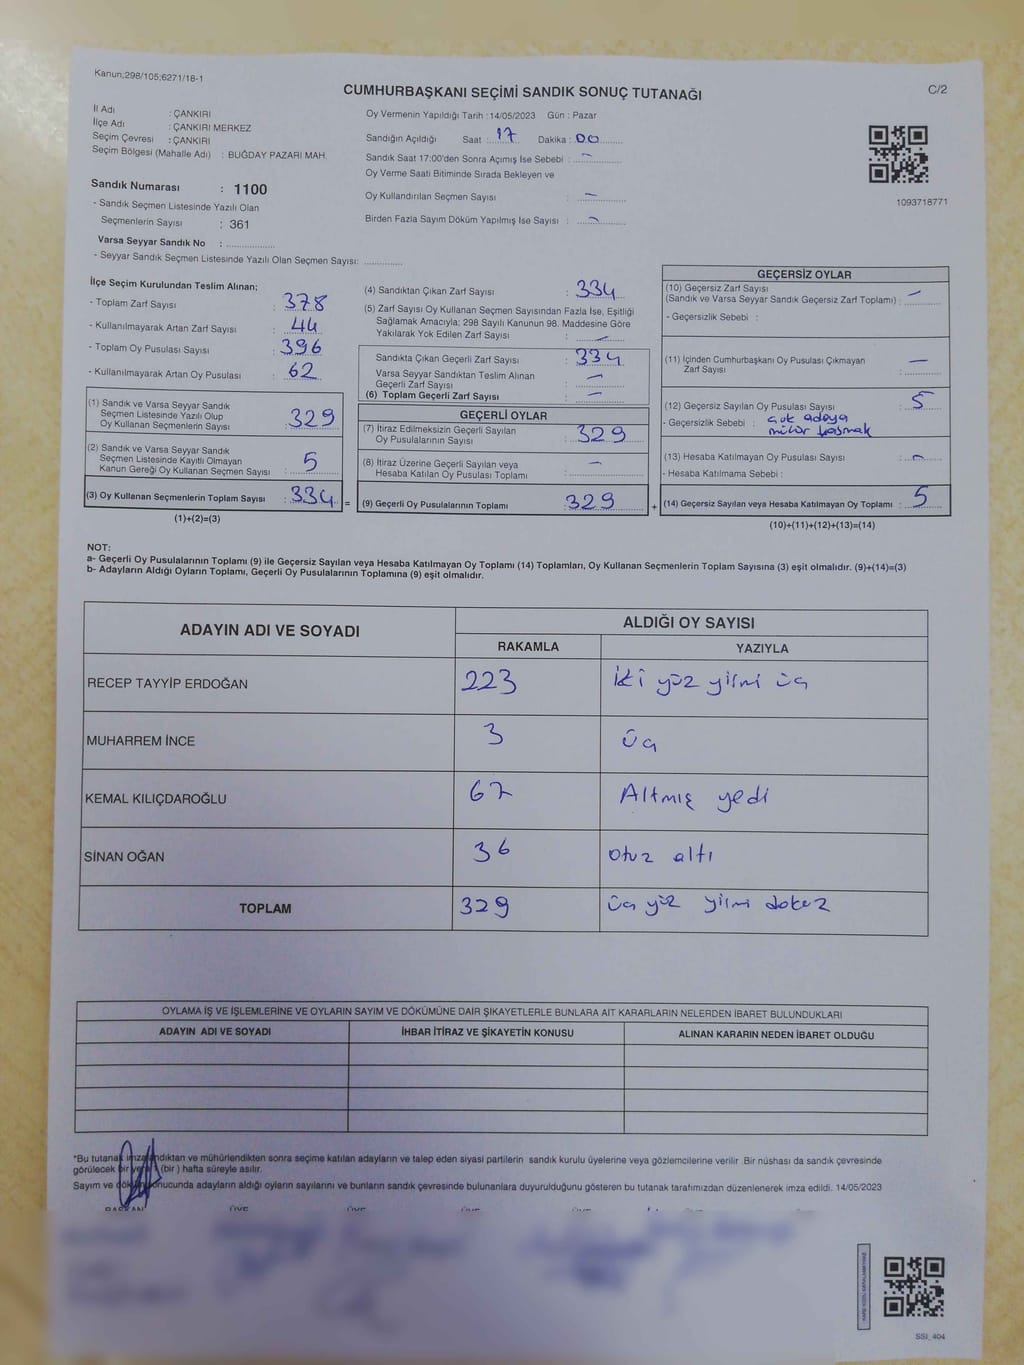 Kanun;298/105;6271/18-1
CUMHURBAŞKANI SEÇİMİ SANDIK SONUÇ TUTANAĞI
C/2
İl Adı : ÇANKIRI
İlçe Adı : ÇANKIRI MERKEZ
Seçim Çevresi : ÇANKIRI
Seçim Bölgesi (Mahalle Adı) : BUĞDAY PAZARI MAH.
Sandık Numarası : 1100
- Sandık Seçmen Listesinde Yazılı Olan
Seçmenlerin Sayısı : 361
Varsa Seyyar Sandık No :
- Seyyar Sandık Seçmen Listesinde Yazılı Olan Seçmen Sayısı:
Oy Vermenin Yapıldığı Tarih : 14/05/2023 Gün : Pazar
Sandığın Açıldığı Saat : 17 Dakika : 00
Sandık Saat 17:00'den Sonra Açımış İse Sebebi : —
Oy Verme Saati Bitiminde Sırada Bekleyen ve
Oy Kullandırılan Seçmen Sayısı : —
Birden Fazla Sayım Döküm Yapılmış İse Sayısı : —
1093718771
İlçe Seçim Kurulundan Teslim Alınan:
- Toplam Zarf Sayısı : 378
- Kullanılmayarak Artan Zarf Sayısı : 44
- Toplam Oy Pusulası Sayısı : 396
- Kullanılmayarak Artan Oy Pusulası : 62
(1) Sandık ve Varsa Seyyar Sandık
Seçmen Listesinde Yazılı Olup
Oy Kullanan Seçmenlerin Sayısı : 329
(2) Sandık ve Varsa Seyyar Sandık
Seçmen Listesinde Kayıtlı Olmayan
Kanun Gereği Oy Kullanan Seçmen Sayısı : 5
(3) Oy Kullanan Seçmenlerin Toplam Sayısı : 334 =
(1)+(2)=(3)
(4) Sandıktan Çıkan Zarf Sayısı : 334
(5) Zarf Sayısı Oy Kullanan Seçmen Sayısından Fazla İse, Eşitliği
Sağlamak Amacıyla; 298 Sayılı Kanunun 98. Maddesine Göre
Yakılarak Yok Edilen Zarf Sayısı : —
Sandıkta Çıkan Geçerli Zarf Sayısı : 334
Varsa Seyyar Sandıktan Teslim Alınan
Geçerli Zarf Sayısı : —
(6) Toplam Geçerli Zarf Sayısı : —
GEÇERLİ OYLAR
(7) İtiraz Edilmeksizin Geçerli Sayılan
Oy Pusulalarının Sayısı : 329
(8) İtiraz Üzerine Geçerli Sayılan veya
Hesaba Katılan Oy Pusulası Toplamı : —
(9) Geçerli Oy Pusulalarının Toplamı : 329 +
GEÇERSİZ OYLAR
(10) Geçersiz Zarf Sayısı
(Sandık ve Varsa Seyyar Sandık Geçersiz Zarf Toplamı) : —
- Geçersizlik Sebebi :
(11) İçinden Cumhurbaşkanı Oy Pusulası Çıkmayan
Zarf Sayısı : —
(12) Geçersiz Sayılan Oy Pusulası Sayısı : 5
- Geçersizlik Sebebi : çok adaya
mühür basmak
(13) Hesaba Katılmayan Oy Pusulası Sayısı : —
- Hesaba Katılmama Sebebi :
(14) Geçersiz Sayılan veya Hesaba Katılmayan Oy Toplamı : 5
(10)+(11)+(12)+(13)=(14)
NOT:
a- Geçerli Oy Pusulalarının Toplamı (9) ile Geçersiz Sayılan veya Hesaba Katılmayan Oy Toplamı (14) Toplamları, Oy Kullanan Seçmenlerin Toplam Sayısına (3) eşit olmalıdır. (9)+(14)=(3)
b- Adayların Aldığı Oyların Toplamı, Geçerli Oy Pusulalarının Toplamına (9) eşit olmalıdır.
ADAYIN ADI VE SOYADI
ALDIĞI OY SAYISI
RAKAMLA YAZIYLA
RECEP TAYYİP ERDOĞAN 223 iki yüz yirmi üç
MUHARREM İNCE 3 üç
KEMAL KILIÇDAROĞLU 67 Altmış yedi
SİNAN OĞAN 36 otuz altı
TOPLAM 329 üç yüz yirmi dokuz
OYLAMA İŞ VE İŞLEMLERİNE VE OYLARIN SAYIM VE DÖKÜMÜNE DAİR ŞİKAYETLERLE BUNLARA AİT KARARLARIN NELERDEN İBARET BULUNDUKLARI
ADAYIN ADI VE SOYADI İHBAR İTİRAZ VE ŞİKAYETİN KONUSU ALINAN KARARIN NEDEN İBARET OLDUĞU
*Bu tutanak imzalandıktan ve mühürlendikten sonra seçime katılan adayların ve talep eden siyasi partilerin sandık kurulu üyelerine veya gözlemcilerine verilir Bir nüshası da sandık çevresinde
görülecek bir yere 1 (bir ) hafta süreyle asılır.
Sayım ve döküm sonucunda adayların aldığı oyların sayılarını ve bunların sandık çevresinde bulunanlara duyurulduğunu gösteren bu tutanak tarafımızdan düzenlenerek imza edildi. 14/05/2023
BAŞKAN ÜYE ÜYE ÜYE ÜYE
SSI_404